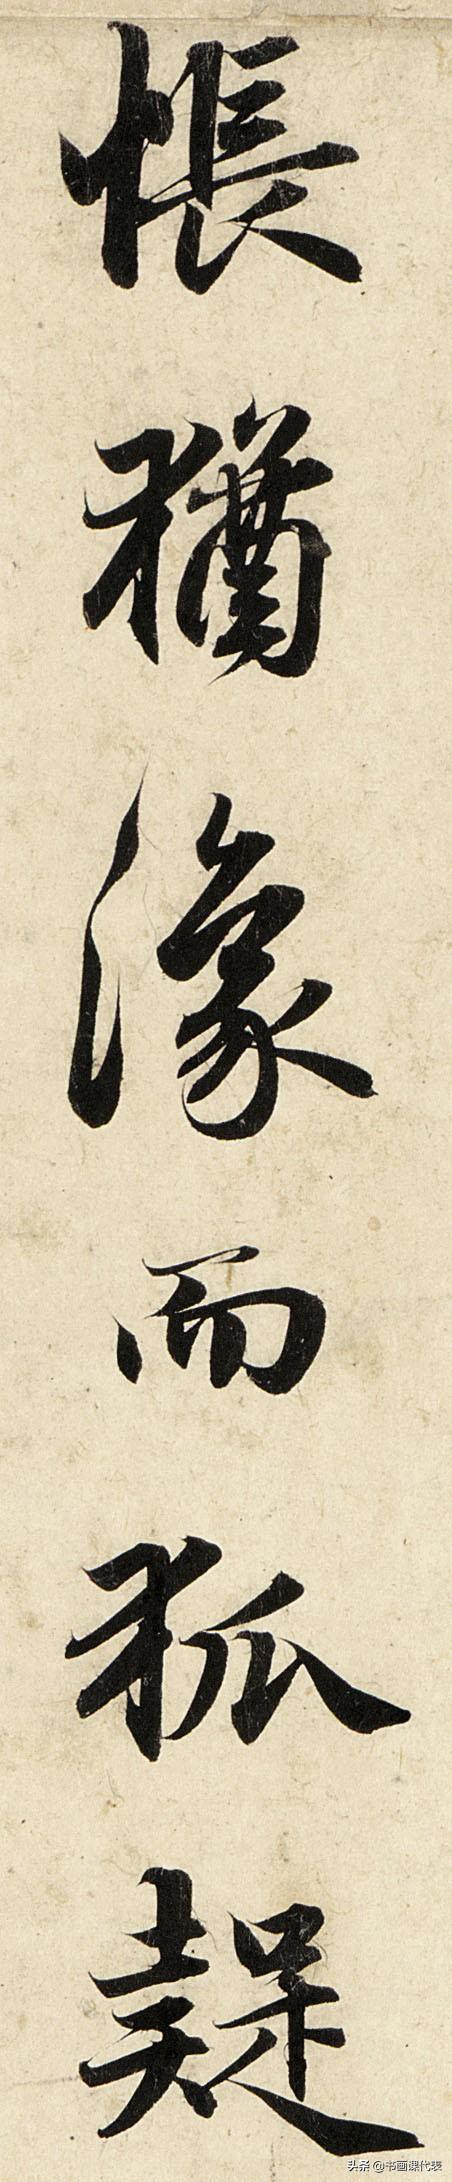 悵猶豫而狐疑
头条 @书画课代表